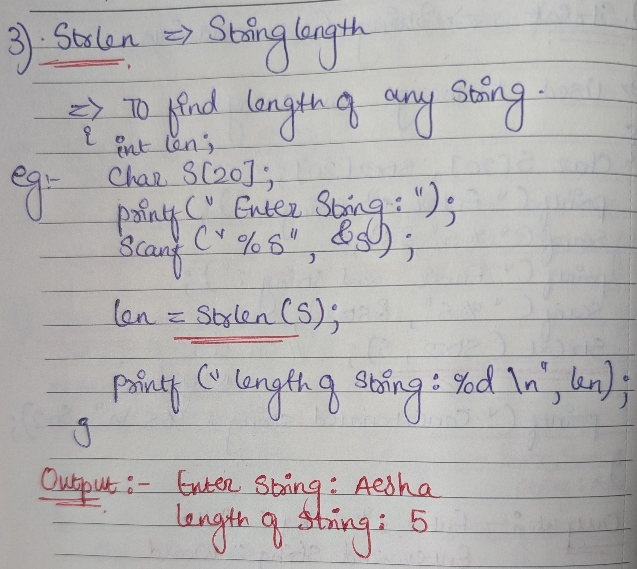 3). Strlen => String length
=> To find length of any string.
{ int len;
eg:- char S[20];
printf (" Enter String : ");
Scanf ("%s", &s);
len = Strlen (S);
printf (" length of string : %d \n", len);
}
Output :- Enter String : Aesha
length of String : 5